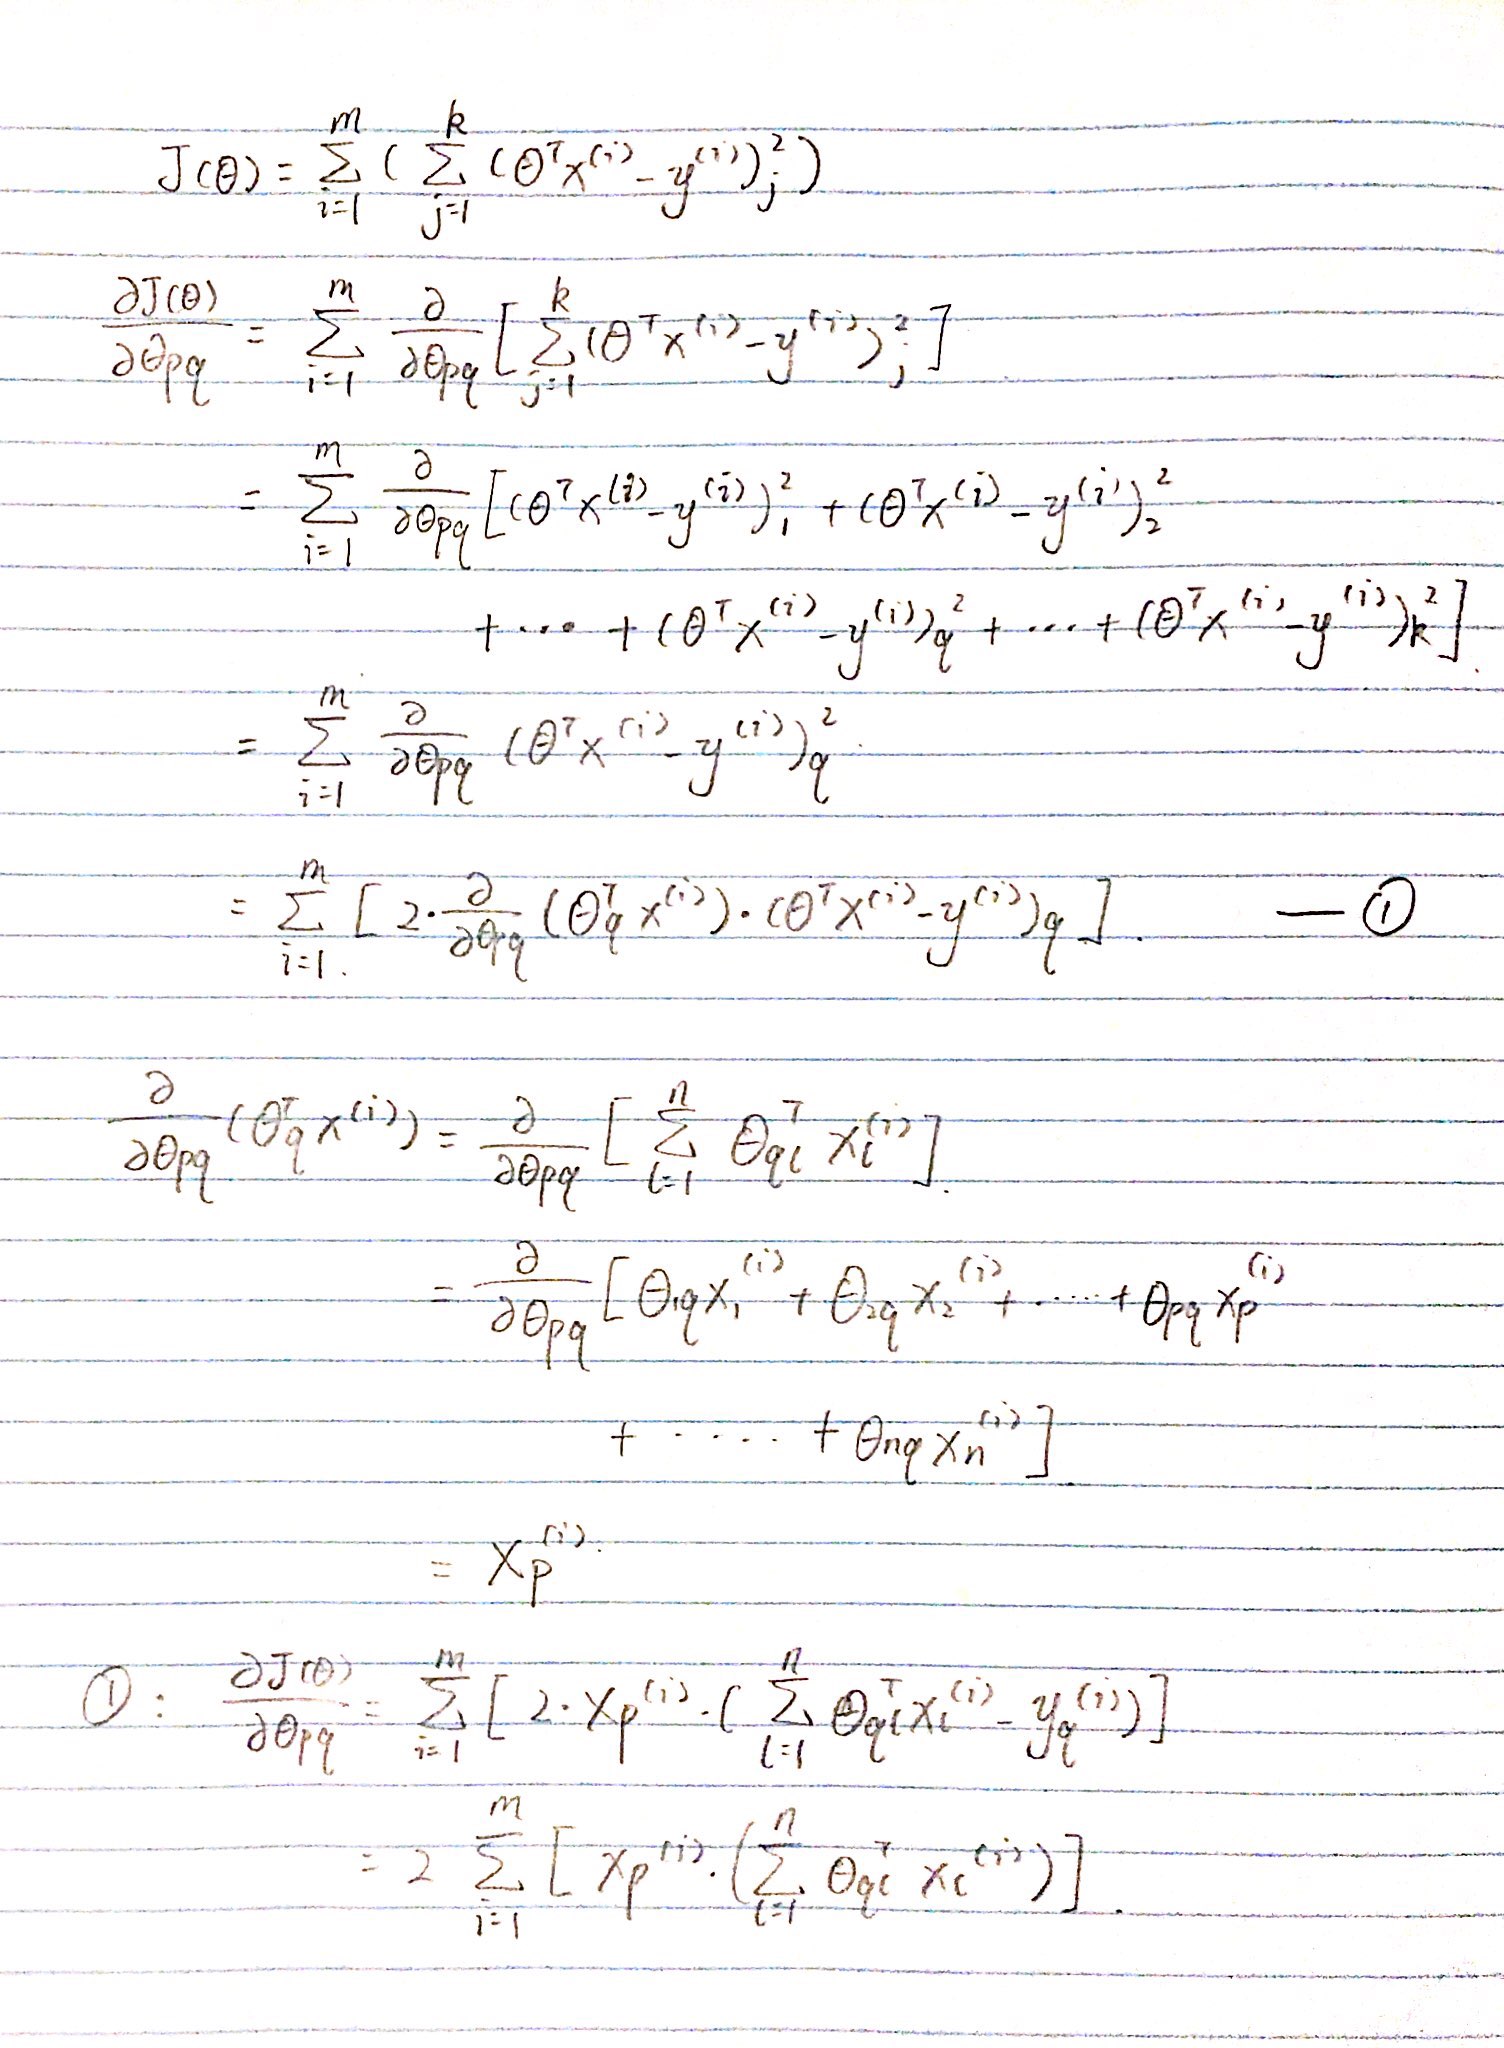 J(θ) = ∑_{i=1}^{m} ( ∑_{j=1}^{k} (θ^T x^{(i)} - y^{(i)})_j^2 )
∂J(θ)/∂θ_{pq} = ∑_{i=1}^{m} ∂/∂θ_{pq} [ ∑_{j=1}^{k} (θ^T x^{(i)} - y^{(i)})_j^2 ]
= ∑_{i=1}^{m} ∂/∂θ_{pq} [ (θ^T x^{(i)} - y^{(i)})_1^2 + (θ^T x^{(i)} - y^{(i)})_2^2
+ ... + (θ^T x^{(i)} - y^{(i)})_q^2 + ... + (θ^T x^{(i)} - y^{(i)})_k^2 ]
= ∑_{i=1}^{m} ∂/∂θ_{pq} (θ^T x^{(i)} - y^{(i)})_q^2
= ∑_{i=1}^{m} [ 2 · ∂/∂θ_{pq} (θ_q^T x^{(i)}) · (θ^T x^{(i)} - y^{(i)})_q ] . — ①
∂/∂θ_{pq} (θ_q^T x^{(i)}) = ∂/∂θ_{pq} [ ∑_{l=1}^{n} θ_{ql}^T x_l^{(i)} ] .
= ∂/∂θ_{pq} [ θ_{1q} x_1^{(i)} + θ_{2q} x_2^{(i)} + ..... + θ_{pq} x_p^{(i)}
+ ..... + θ_{nq} x_n^{(i)} ]
= x_p^{(i)} .
① : ∂J(θ)/∂θ_{pq} = ∑_{i=1}^{m} [ 2 · x_p^{(i)} · ( ∑_{l=1}^{n} θ_{ql}^T x_l^{(i)} - y_q^{(i)} ) ]
= 2 ∑_{i=1}^{m} [ x_p^{(i)} · ( ∑_{l=1}^{n} θ_{ql}^T x_l^{(i)} ) ] .